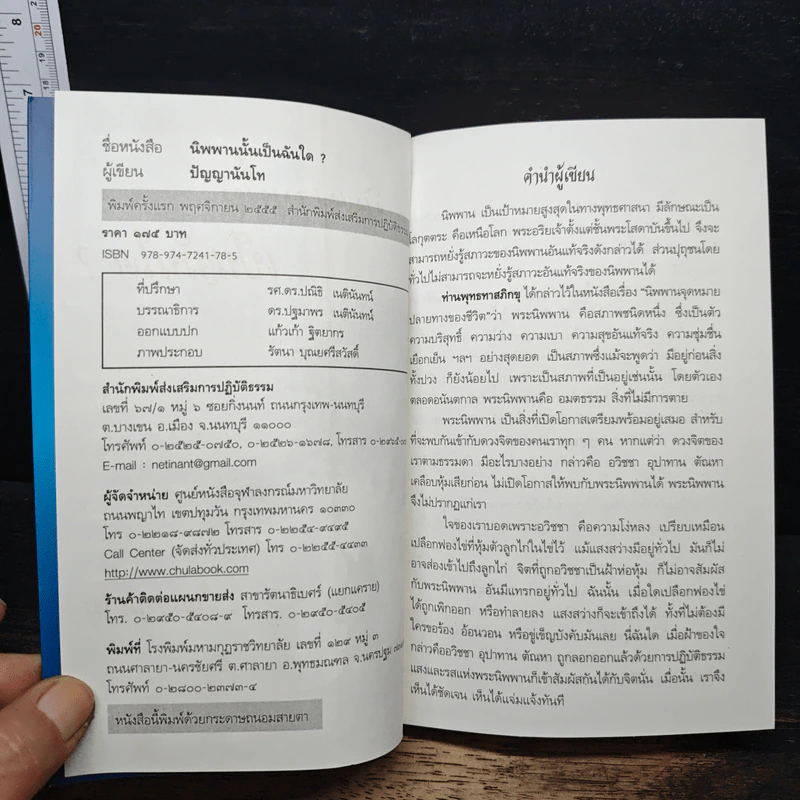 ชื่อหนังสือ นิพพานนั้นเป็นฉันใด ?
ผู้เขียน ปัญญานันโท
พิมพ์ครั้งแรก พฤศจิกายน ๒๕๕๕ สำนักพิมพ์ส่งเสริมการปฏิบัติธรรม
ราคา ๑๗๕ บาท
ISBN 978-974-7241-78-5
ที่ปรึกษา รศ.ดร.ปณิธิ เนตินันทน์
บรรณาธิการ ดร.ปฐมาพร เนตินันทน์
ออกแบบปก แก้วเก้า ฐิตยากร
ภาพประกอบ รัตนา บุณยศรีสวัสดิ์
สำนักพิมพ์ส่งเสริมการปฏิบัติธรรม
เลขที่ ๖๗/๑ หมู่ ๖ ซอยกิ่งนนท์ ถนนกรุงเทพ-นนทบุรี
ต.บางเขน อ.เมือง จ.นนทบุรี ๑๑๐๐๐
โทรศัพท์ ๐-๒๕๒๕-๐๗๕๐, ๐-๒๕๒๖-๑๖๗๘, โทรสาร
E-mail : netinant@gmail.com
ผู้จัดจำหน่าย ศูนย์หนังสือจุฬาลงกรณ์มหาวิทยาลัย
ถนนพญาไท เขตปทุมวัน กรุงเทพมหานคร ๑๐๓๓๐
โทร ๐-๒๒๑๘-๙๘๗๒ โทรสาร ๐-๒๒๕๔-๙๔๙๕
Call Center (จัดส่งทั่วประเทศ) โทร ๐-๒๒๕๕-๔๔๓๓
http://www.chulabook.com
ร้านค้าติดต่อแผนกขายส่ง สาขารัตนาธิเบศร์ (แยกแคราย)
โทร. ๐-๒๙๕๐-๕๔๐๘-๙ โทรสาร. ๐-๒๙๕๐-๕๔๐๕
พิมพ์ที่ โรงพิมพ์มหามกุฏราชวิทยาลัย เลขที่ ๑๒๙ หมู่ ๓
ถนนศาลายา-นครชัยศรี ต.ศาลายา อ.พุทธมณฑล จ.นครปฐม
โทรศัพท์ ๐-๒๘๐๐-๒๓๗๓-๔
หนังสือนี้พิมพ์ด้วยกระดาษถนอมสายตา
คำนำผู้เขียน
นิพพาน เป็นเป้าหมายสูงสุดในทางพุทธศาสนา มีลักษณะเป็น
โลกุตตระ คือเหนือโลก พระอริยเจ้าตั้งแต่ชั้นพระโสดาบันขึ้นไป จึงจะ
สามารถหยั่งรู้สภาวะของนิพพานอันแท้จริงดังกล่าวได้ ส่วนปุถุชนโดย
ทั่วไปไม่สามารถจะหยั่งรู้สภาวะอันแท้จริงของนิพพานได้
ท่านพุทธทาสภิกขุ ได้กล่าวไว้ในหนังสือเรื่อง "นิพพานจุดหมาย
ปลายทางของชีวิต"ว่า พระนิพพาน คือสภาพชนิดหนึ่ง ซึ่งเป็นตัว
ความบริสุทธิ์ ความว่าง ความเบา ความสุขอันแท้จริง ความชุ่มชื่น
เยือกเย็น ฯลฯ อย่างสุดยอด เป็นสภาพซึ่งแม้จะพูดว่า มีอยู่ก่อนสิ่ง
ทั้งปวง ก็ยังน้อยไป เพราะเป็นสภาพที่เป็นอยู่เช่นนั้น โดยตัวเอง
ตลอดอนันตกาล พระนิพพานคือ อมตธรรม สิ่งที่ไม่มีการตาย
พระนิพพาน เป็นสิ่งที่เปิดโอกาสเตรียมพร้อมอยู่เสมอ สำหรับ
ที่จะพบกันเข้ากับดวงจิตของคนเราทุก ๆ คน หากแต่ว่า ดวงจิตของ
เราตามธรรมดา มีอะไรบางอย่าง กล่าวคือ อวิชชา อุปาทาน ตัณหา
เคลือบหุ้มเสียก่อน ไม่เปิดโอกาสให้พบกับพระนิพพานได้ พระนิพพาน
จึงไม่ปรากฏแก่เรา
ใจของเราบอดเพราะอวิชชา คือความโง่หลง เปรียบเหมือน
เปลือกฟองไข่ที่หุ้มตัวลูกไก่ในไข่ไว้ แม้แสงสว่างมีอยู่ทั่วไป มันก็ไม่
อาจส่องเข้าไปถึงลูกไก่ จิตที่ถูกอวิชชาเป็นฝ้าห่อหุ้ม ก็ไม่อาจสัมผัส
กับพระนิพพาน อันมีแทรกอยู่ทั่วไป ฉันนั้น เมื่อใดเปลือกฟองไข่
ได้ถูกเพิกออก หรือทำลายลง แสงสว่างก็จะเข้าถึงได้ ทั้งที่ไม่ต้องมี
ใครขอร้อง อ้อนวอน หรือขู่เข็ญบังคับมันเลย นี่ฉันใด เมื่อฝ้าของใจ
กล่าวคืออวิชชา อุปาทาน ตัณหา ถูกลอกออกแล้วด้วยการปฏิบัติธรรม
แสงและรสแห่งพระนิพพานก็เข้าสัมผัสกันได้กับจิตนั่น เมื่อนั้น เราจึง
เห็นได้ชัดเจน เห็นได้แจ่มแจ้งทันที